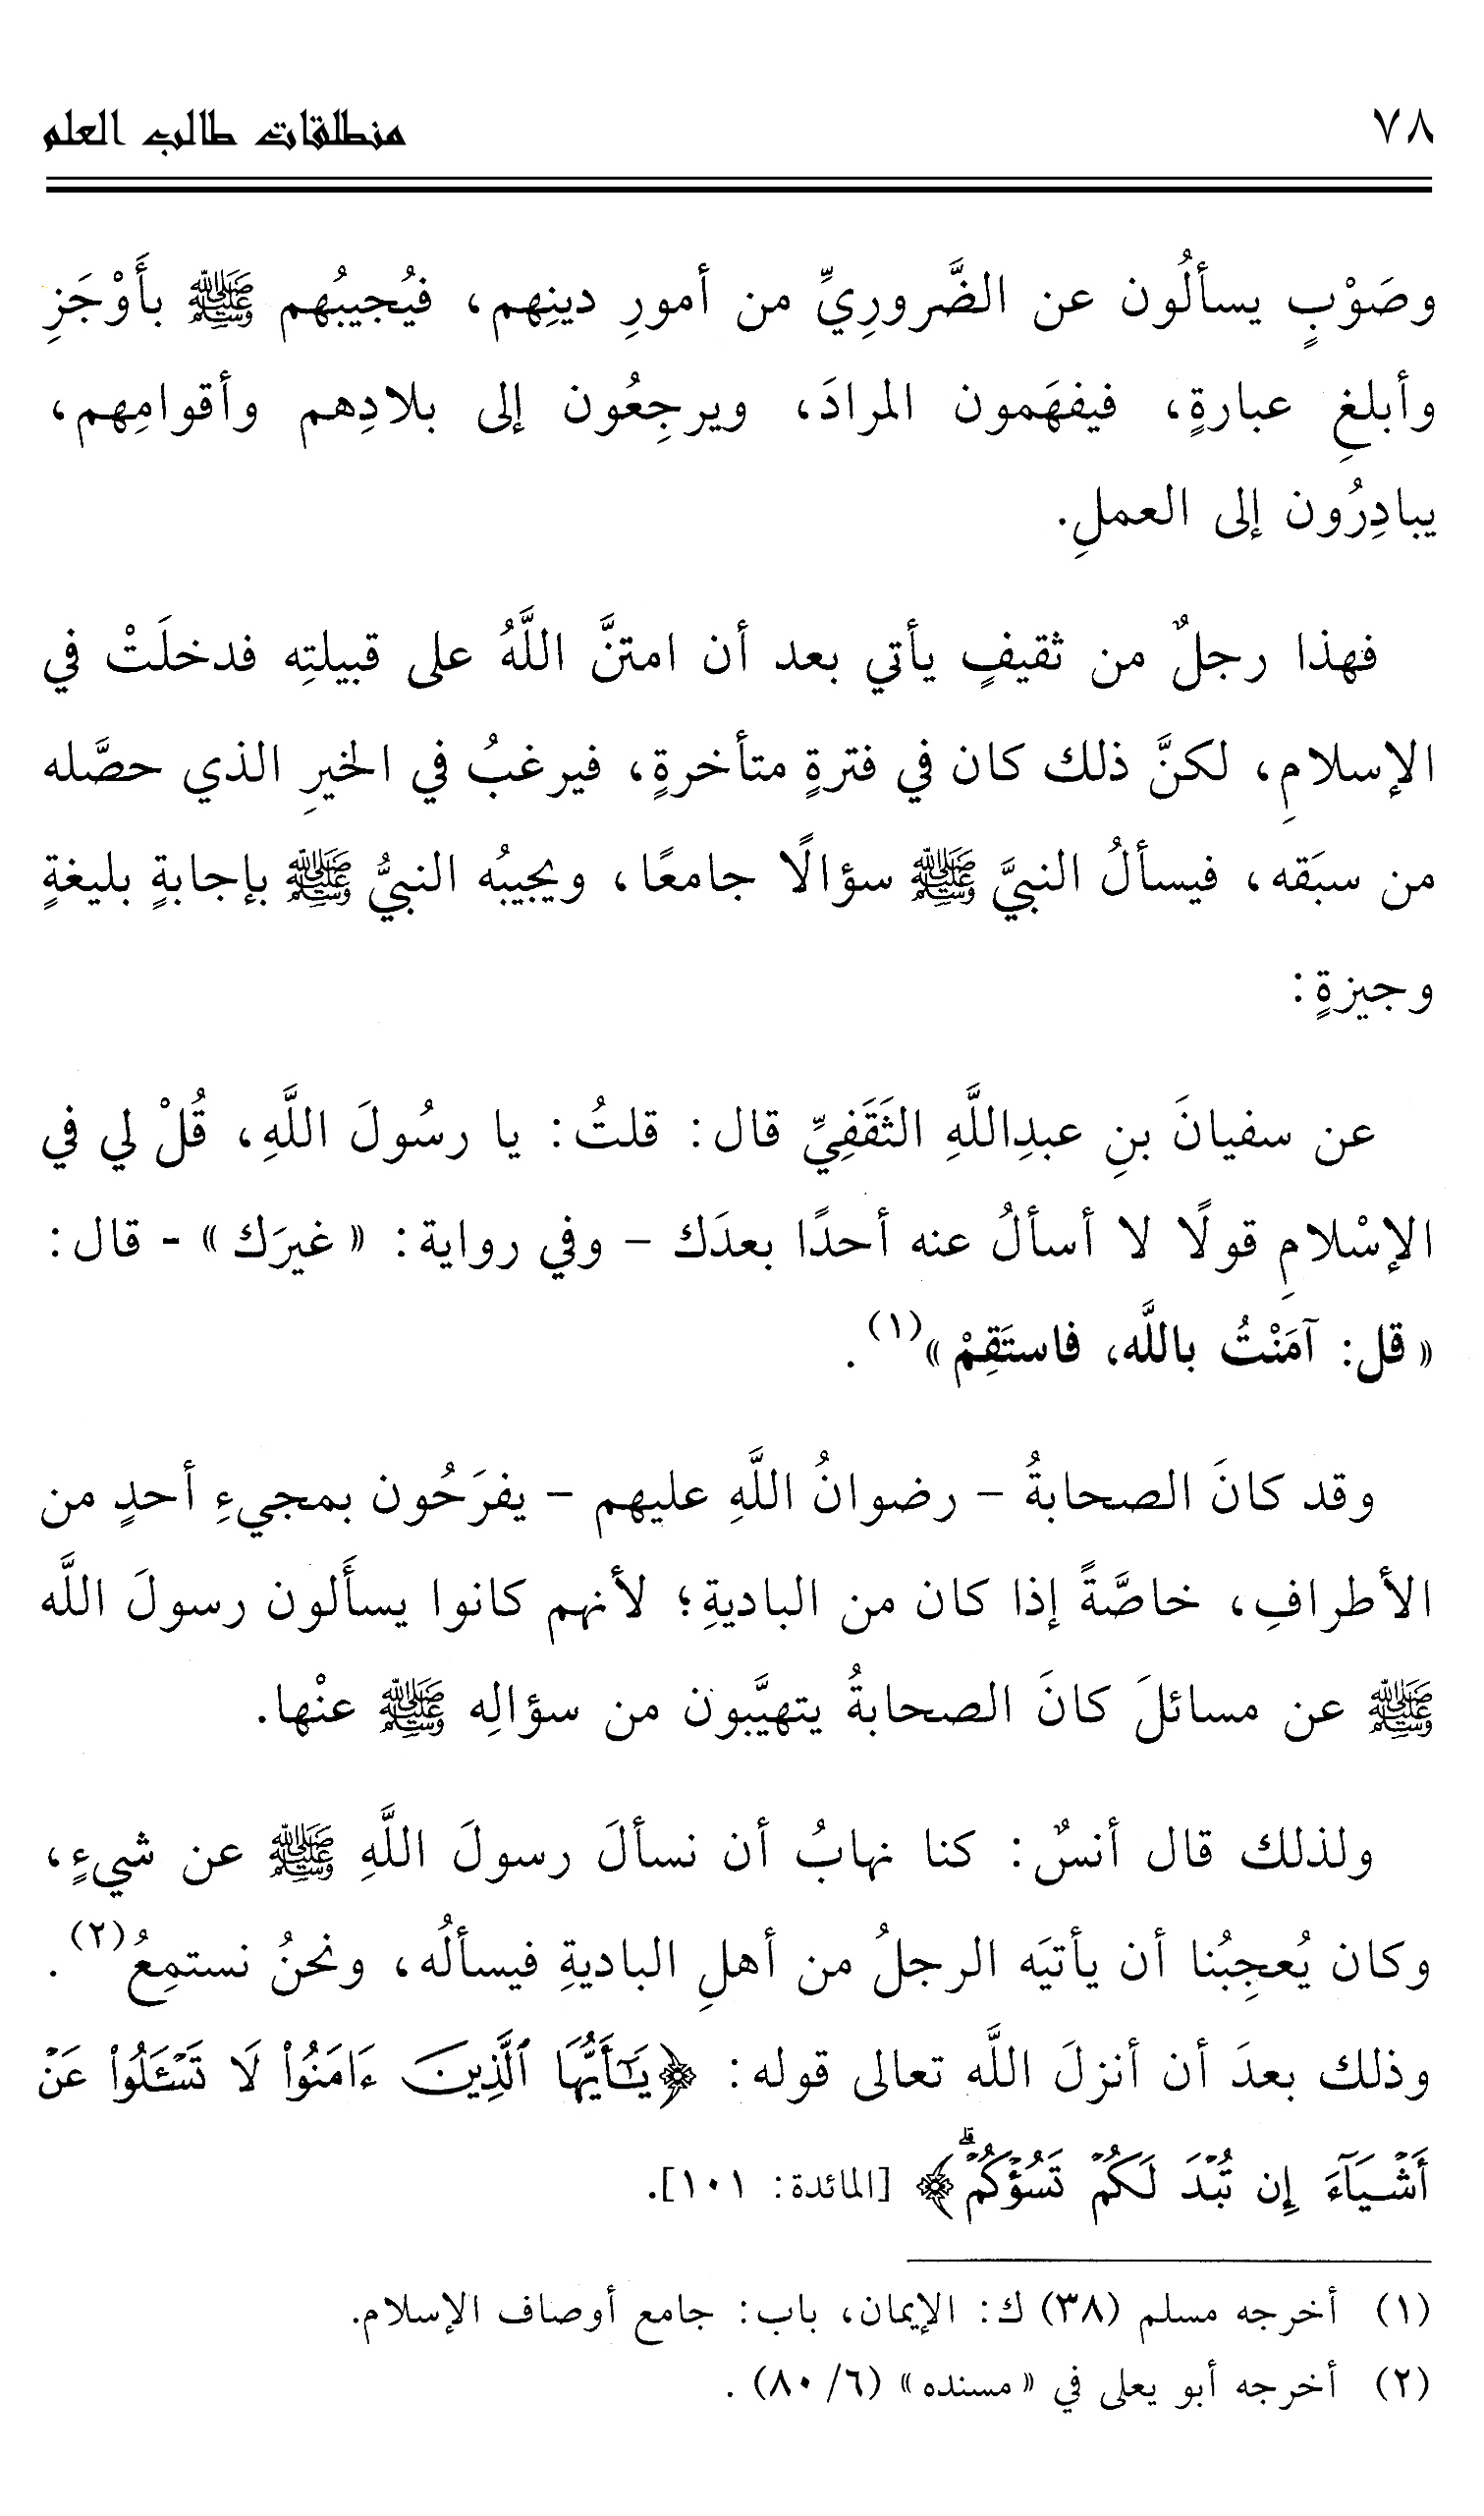 ٧٨ منطلقات طالب العلم
وصَوْبٍ يسألُون عن الضَّرورِيِّ من أمورِ دينِهم، فيُجيبُهم ﷺ بأَوْجَزِ
وأبلغِ عبارةٍ، فيفهَمون المرادَ، ويرجِعُون إلى بلادِهم وأقوامِهم،
يبادِرُون إلى العملِ.
فهذا رجلٌ من ثقيفٍ يأتي بعد أن امتنَّ اللَّهُ على قبيلتِه فدخلَتْ في
الإسلامِ، لكنَّ ذلك كان في فترةٍ متأخرةٍ، فيرغبُ في الخيرِ الذي حصَّله
من سبَقه، فيسألُ النبيَّ ﷺ سؤالًا جامعًا، ويجيبُه النبيُّ ﷺ بإجابةٍ بليغةٍ
وجيزةٍ:
عن سفيانَ بنِ عبدِاللَّهِ الثَقَفِيِّ قال: قلتُ: يا رسُولَ اللَّهِ، قُلْ لي في
الإسْلامِ قولًا لا أسألُ عنه أحدًا بعدَك – وفي رواية: «غيرَك» - قال:
«قل: آمَنْتُ باللَّه، فاستَقِمْ»(١).
وقد كانَ الصحابةُ – رضوانُ اللَّهِ عليهم – يفرَحُون بمجيءِ أحدٍ من
الأطرافِ، خاصَّةً إذا كان من الباديةِ؛ لأنهم كانوا يسأَلون رسولَ اللَّه
ﷺ عن مسائلَ كانَ الصحابةُ يتهيَّبون من سؤالِه ﷺ عنْها.
ولذلك قال أنسٌ: كنا نهابُ أن نسألَ رسولَ اللَّهِ ﷺ عن شيءٍ،
وكان يُعجِبُنا أن يأتيَه الرجلُ من أهلِ الباديةِ فيسألُه، ونحنُ نستمِعُ(٢).
وذلك بعدَ أن أنزلَ اللَّه تعالى قوله: ﴿يَٰٓأَيُّهَا ٱلَّذِينَ ءَامَنُوا۟ لَا تَسْـَٔلُوا۟ عَنْ
أَشْيَآءَ إِن تُبْدَ لَكُمْ تَسُؤْكُمْۗ﴾ [المائدة: ١٠١].
(١) أخرجه مسلم (٣٨) ك: الإيمان، باب: جامع أوصاف الإسلام.
(٢) أخرجه أبو يعلى في «مسنده» (٨٠/٦).